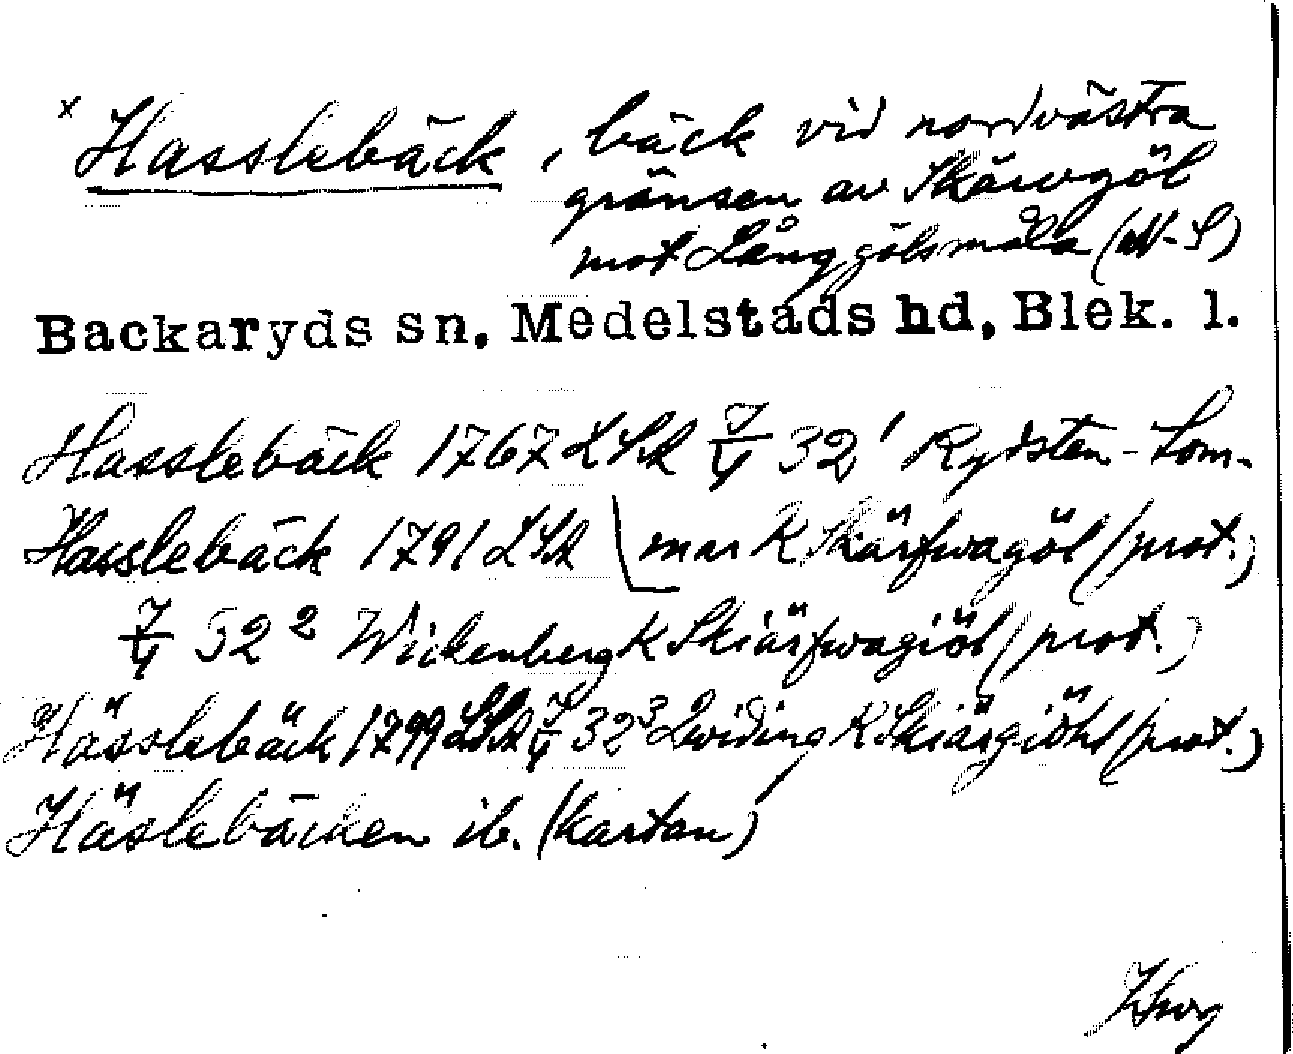 x Hasslebäck, bäck vid nordvästra
gränsen av Skärvgöl
mot Långgölsmåla (N-S)
Backaryds sn, Medelstads hd, Blek. l.
Hasslebäck 1767 LSA 32¹ Rydsten - Som-
Hasslebäck 1791 LSA mar K Skärfwagöl (prot.)
52² Wickenberg K Skiärfwagiöl (prot.)
Hässlebäck 1799 LSA 32³ Qwiding K Skiärgiöhl (prot.)
Häslebäcken ib. (kartan)